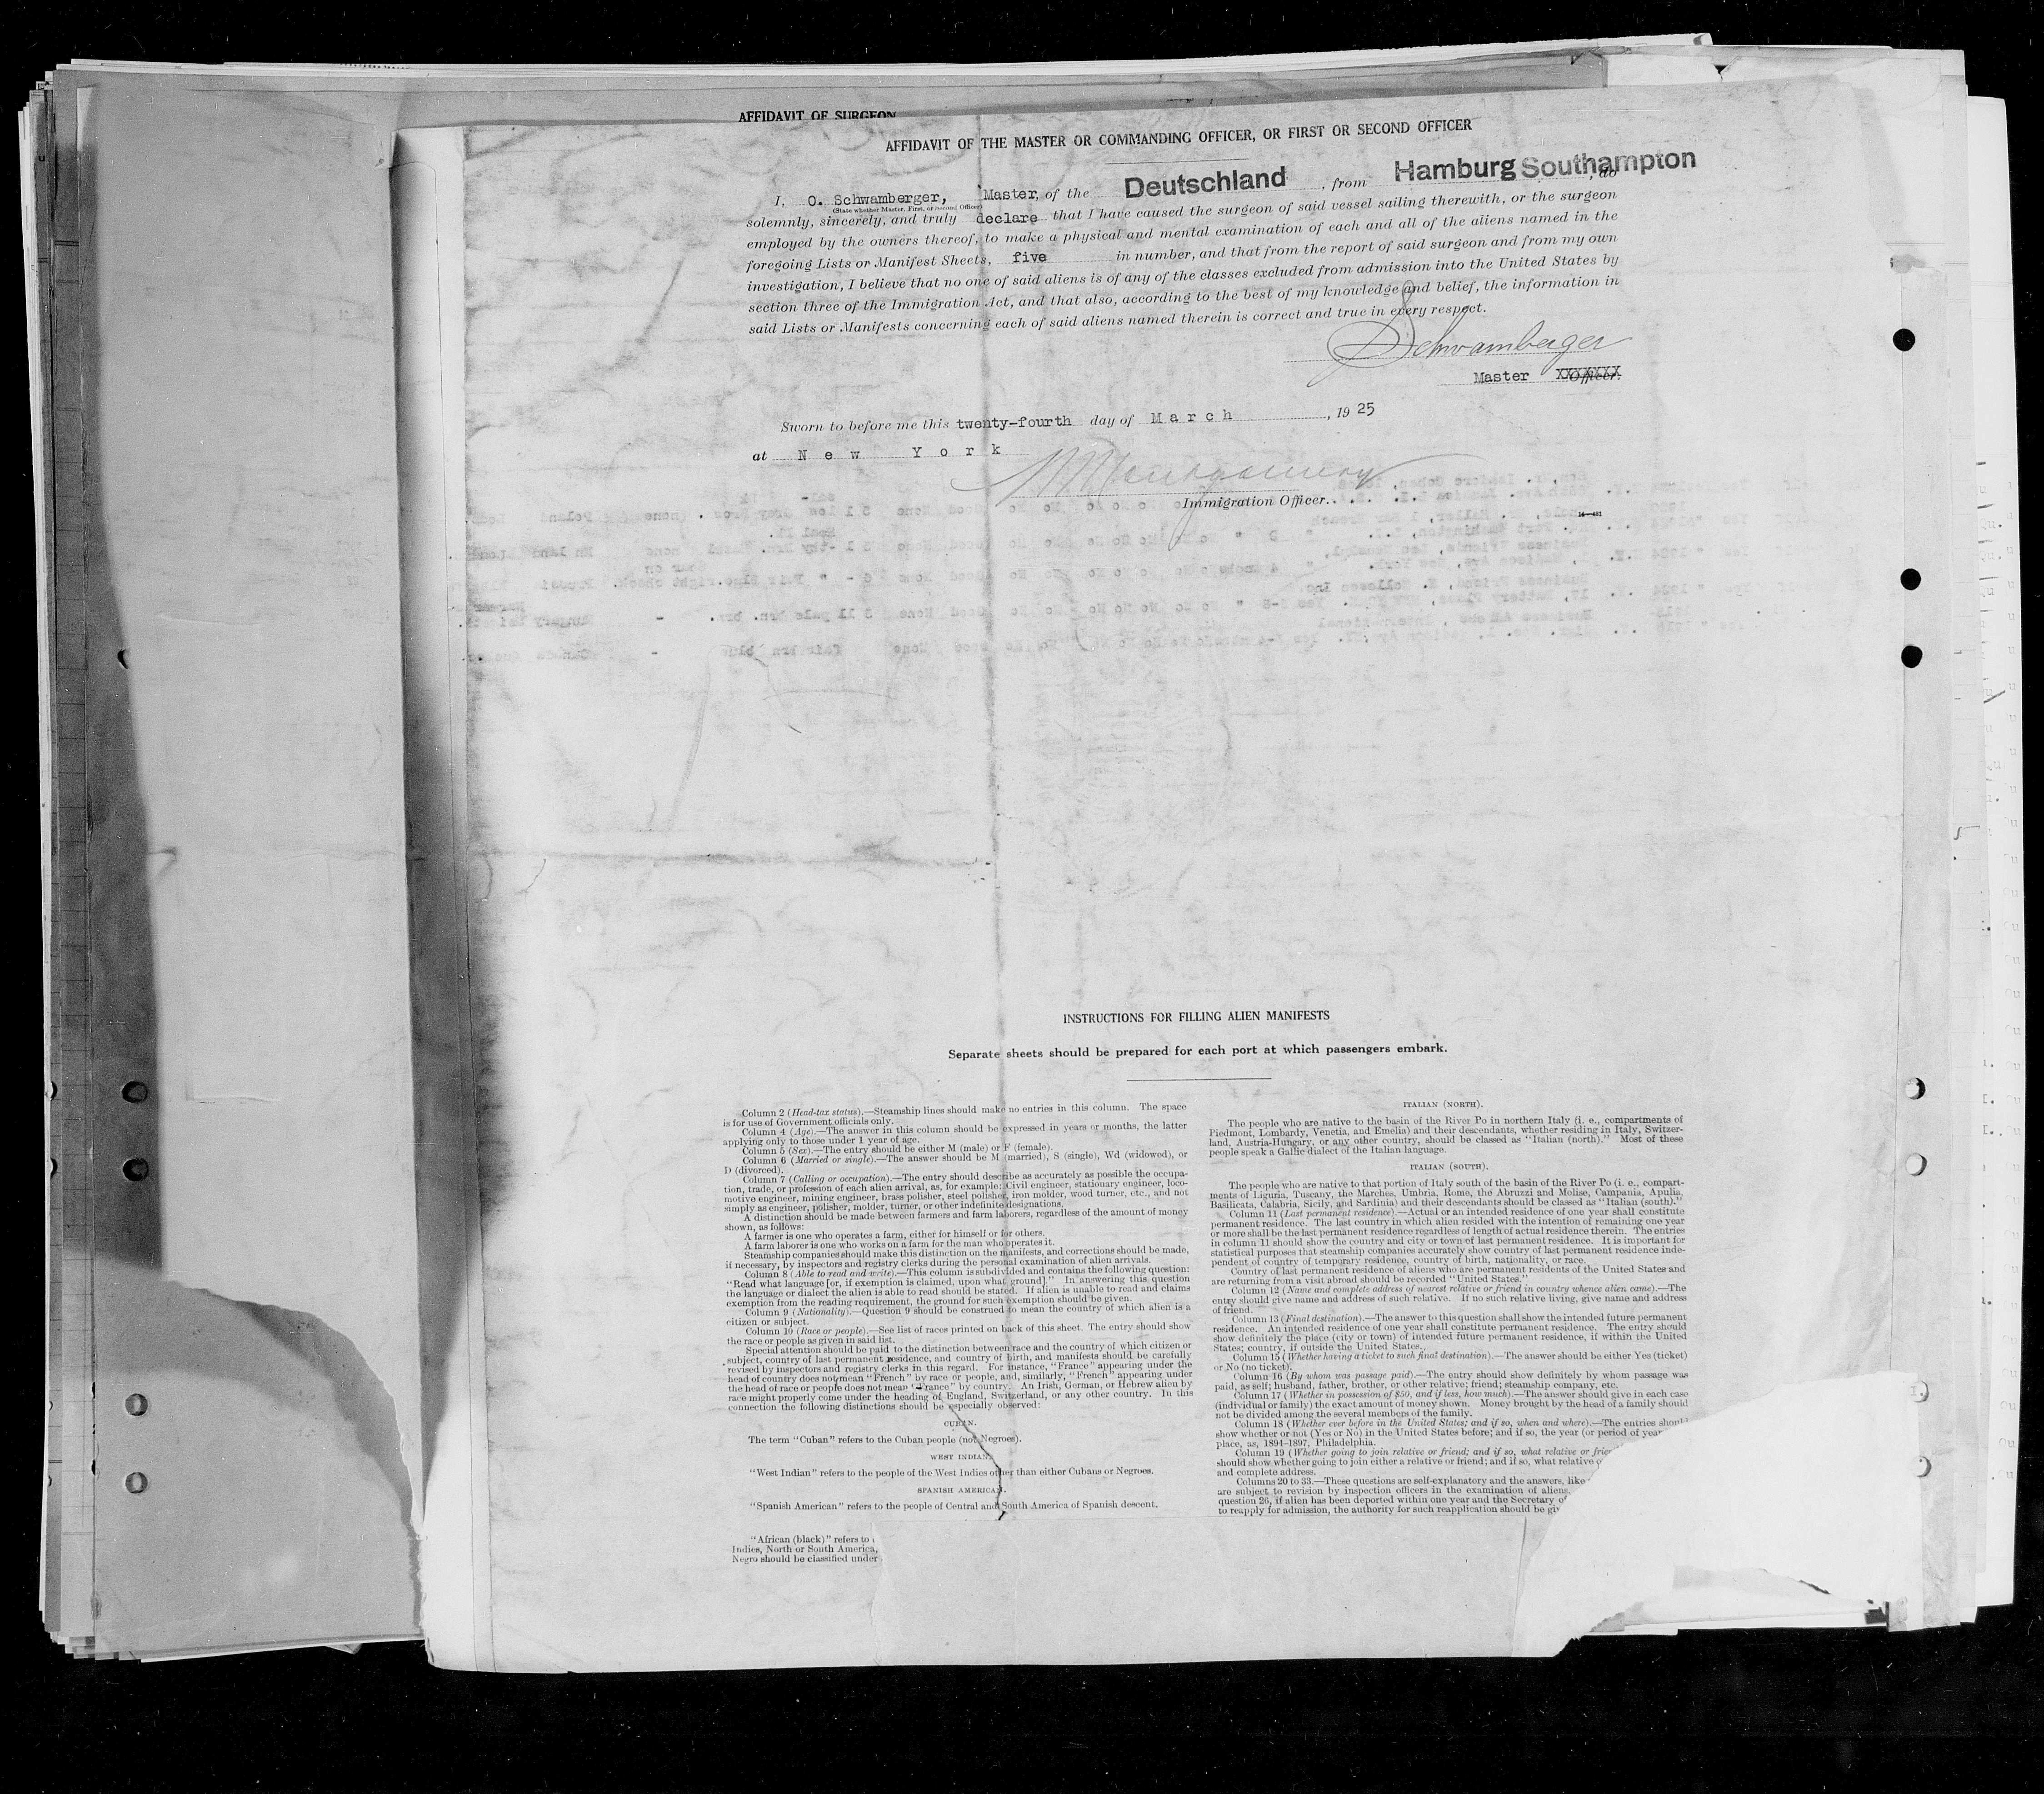 AFFIDAVIT OF SURGEON
AFFIDAVIT OF THE MASTER OR COMMANDING OFFICER, OR FIRST OR SECOND OFFICER
I, O. Schwamberger, Master, of the Deutschland, from Hamburg Southampton, do
(State whether Master, First, or Second Officer)
solemnly, sincerely, and truly declare that I have caused the surgeon of said vessel sailing therewith, or the surgeon
employed by the owners thereof, to make a physical and mental examination of each and all of the aliens named in the
foregoing Lists or Manifest Sheets, five in number, and that from the report of said surgeon and from my own
investigation, I believe that no one of said aliens is of any of the classes excluded from admission into the United States by
section three of the Immigration Act, and that also, according to the best of my knowledge and belief, the information in
said Lists or Manifests concerning each of said aliens named therein is correct and true in every respect.
Schwamberger
Master XXXXXXX Officer.
Sworn to before me this twenty-fourth day of March, 1925
at New York
Montgomery
Immigration Officer.
INSTRUCTIONS FOR FILLING ALIEN MANIFESTS
Separate sheets should be prepared for each port at which passengers embark.
Column 2 (Head-tax status).—Steamship lines should make no entries in this column. The space
is for use of Government officials only.
Column 4 (Age).—The answer in this column should be expressed in years or months, the latter
applying only to those under 1 year of age.
Column 5 (Sex).—The entry should be either M (male) or F (female).
Column 6 (Married or single).—The answer should be M (married), S (single), Wd (widowed), or
D (divorced).
Column 7 (Calling or occupation).—The entry should describe as accurately as possible the occupa-
tion, trade, or profession of each alien arrival, as, for example: Civil engineer, stationary engineer, loco-
motive engineer, mining engineer, brass polisher, steel polisher, iron molder, wood turner, etc., and not
simply as engineer, polisher, molder, turner, or other indefinite designations.
A distinction should be made between farmers and farm laborers, regardless of the amount of money
shown, as follows:
A farmer is one who operates a farm, either for himself or for others.
A farm laborer is one who works on a farm for the man who operates it.
Steamship companies should make this distinction on the manifests, and corrections should be made,
if necessary, by inspectors and registry clerks during the personal examination of alien arrivals.
Column 8 (Able to read and write).—This column is subdivided and contains the following question:
"Read what language [or, if exemption is claimed, upon what ground]." In answering this question
the language or dialect the alien is able to read should be stated. If alien is unable to read and claims
exemption from the reading requirement, the ground for such exemption should be given.
Column 9 (Nationality).—Question 9 should be construed to mean the country of which alien is a
citizen or subject.
Column 10 (Race or people).—See list of races printed on back of this sheet. The entry should show
the race or people as given in said list.
Special attention should be paid to the distinction between race and the country of which citizen or
subject, country of last permanent residence, and country of birth, and manifests should be carefully
revised by inspectors and registry clerks in this regard. For instance, "France" appearing under the
head of country does not mean "French" by race or people, and, similarly, "French" appearing under
the head of race or people does not mean "France" by country. An Irish, German, or Hebrew alien by
race might properly come under the heading of England, Switzerland, or any other country. In this
connection the following distinctions should be especially observed:
CUBAN.
The term "Cuban" refers to the Cuban people (not Negroes).
WEST INDIAN.
"West Indian" refers to the people of the West Indies other than either Cubans or Negroes.
SPANISH AMERICAN.
"Spanish American" refers to the people of Central and South America of Spanish descent.
"African (black)" refers to
Indies, North or South America,
Negro should be classified under
ITALIAN (NORTH).
The people who are native to the basin of the River Po in northern Italy (i. e., compartments of
Piedmont, Lombardy, Venetia, and Emelia) and their descendants, whether residing in Italy, Switzer-
land, Austria-Hungary, or any other country, should be classed as "Italian (north)." Most of these
people speak a Gallic dialect of the Italian language.
ITALIAN (SOUTH).
The people who are native to that portion of Italy south of the basin of the River Po (i. e., compart-
ments of Liguria, Tuscany, the Marches, Umbria, Rome, the Abruzzi and Molise, Campania, Apulia,
Basilicata, Calabria, Sicily, and Sardinia) and their descendants should be classed as "Italian (south)."
Column 11 (Last permanent residence).—Actual or an intended residence of one year shall constitute
permanent residence. The last country in which alien resided with the intention of remaining one year
or more shall be the last permanent residence regardless of length of actual residence therein. The entries
in column 11 should show the country and city or town of last permanent residence. It is important for
statistical purposes that steamship companies accurately show country of last permanent residence inde-
pendent of country of temporary residence, country of birth, nationality, or race.
Country of last permanent residence of aliens who are permanent residents of the United States and
are returning from a visit abroad should be recorded "United States."
Column 12 (Name and complete address of nearest relative or friend in country whence alien came).—The
entry should give name and address of such relative. If no such relative living, give name and address
of friend.
Column 13 (Final destination).—The answer to this question shall show the intended future permanent
residence. An intended residence of one year shall constitute permanent residence. The entry should
show definitely the place (city or town) of intended future permanent residence, if within the United
States; country, if outside the United States.
Column 15 (Whether having a ticket to such final destination).—The answer should be either Yes (ticket)
or No (no ticket).
Column 16 (By whom was passage paid).—The entry should show definitely by whom passage was
paid, as self; husband, father, brother, or other relative; friend; steamship company, etc.
Column 17 (Whether in possession of $50, and if less, how much).—The answer should give in each case
(individual or family) the exact amount of money shown. Money brought by the head of a family should
not be divided among the several members of the family.
Column 18 (Whether ever before in the United States; and if so, when and where).—The entries should
show whether or not (Yes or No) in the United States before; and if so, the year (or period of year
place, as, 1894-1897, Philadelphia.
Column 19 (Whether going to join relative or friend; and if so, what relative or
should show whether going to join either a relative or friend; and if so, what relative
and complete address.
Columns 20 to 33.—These questions are self-explanatory and the answers, like
are subject to revision by inspection officers in the examination of aliens.
question 26, if alien has been deported within one year and the Secretary of
to reapply for admission, the authority for such reapplication should be